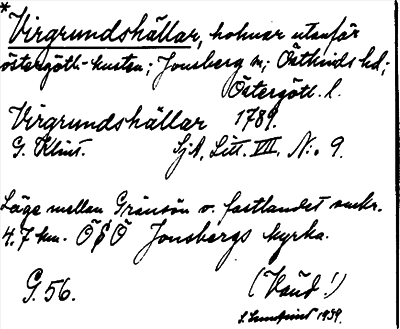 *
Virgrundshällar, holmar utanför
östergötl. kusten; Jonsberg sn; Östkinds hd;
Östergötl. l.
Virgrundshällar 1789.
G. Klint. SjA, Litt. VII. N:o 9.
Läge mellan Gränsön o. fastlandet
4.7 km. ÖSÖ Jonsbergs kyrka.
G. 56. (Vaud!)
1939.